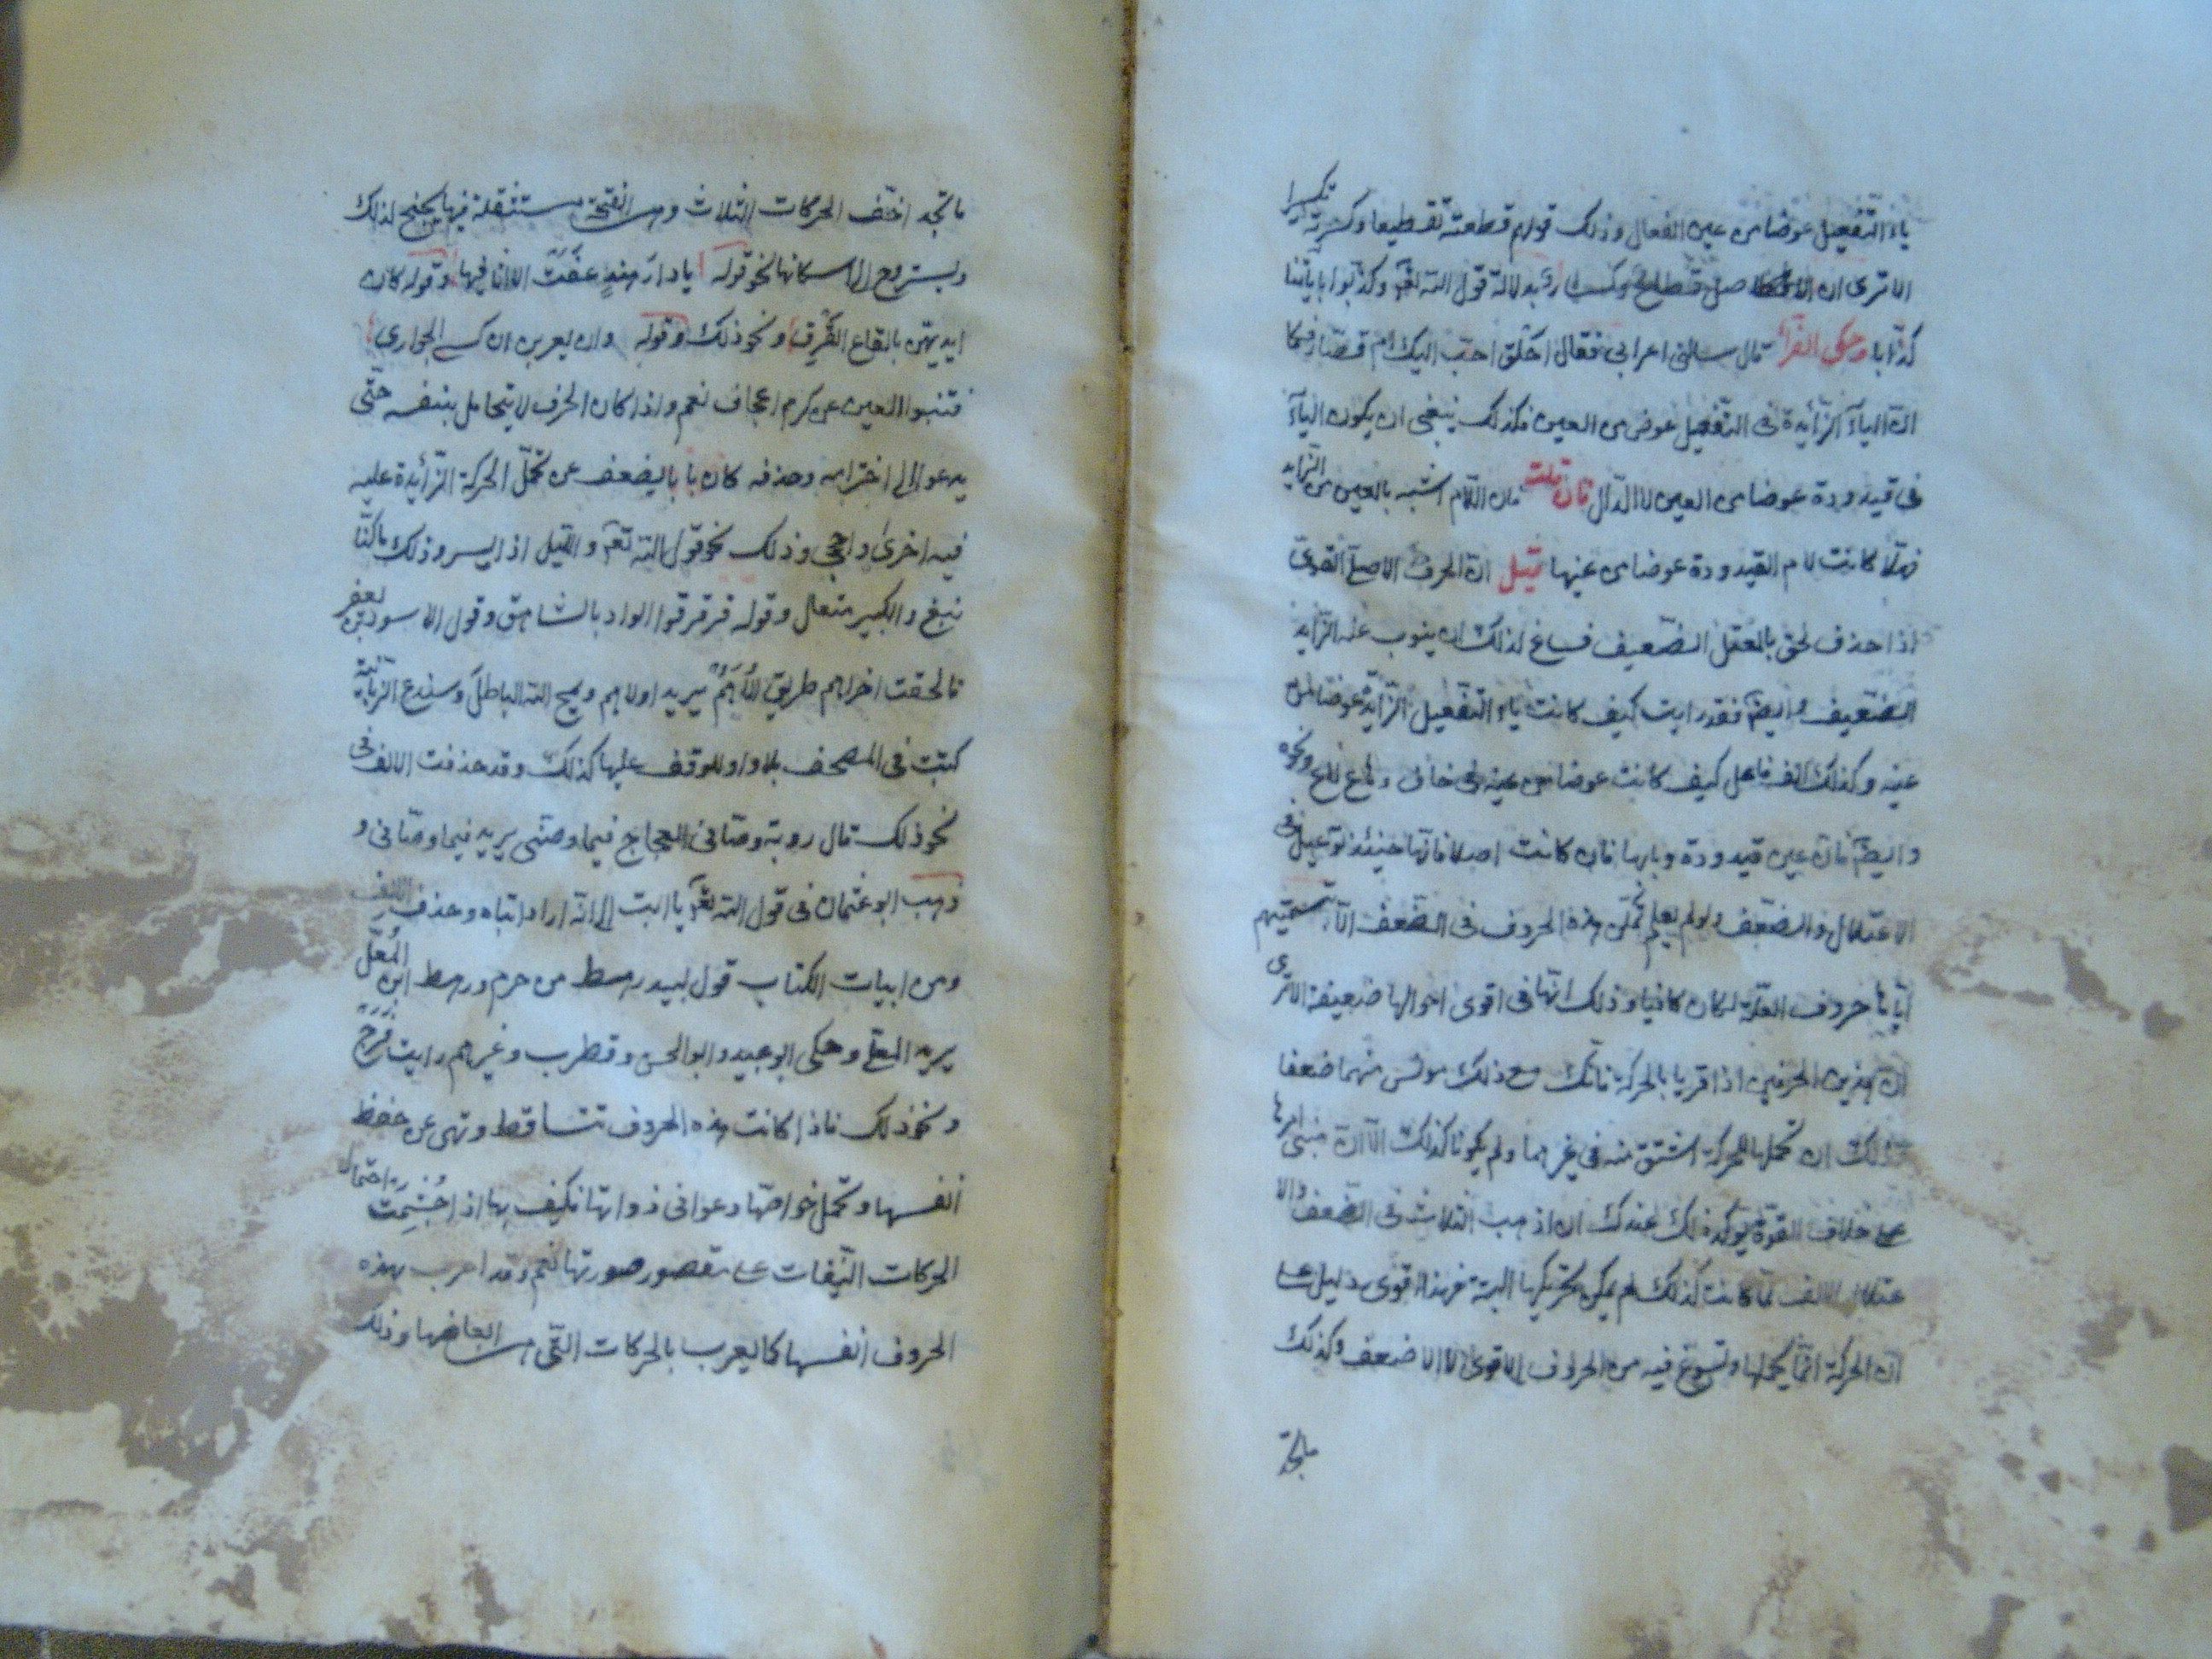 ياء التفعيل عوضا من عين الفعال وذلك قولهم قطعته تقطيعا وكسرته تكسيرا
الا ترى ان الاصل قطاع وكسار بدلالة قول الله تعالى وكذبوا باياتنا
كذابا وحكى الفرا قال سالنى اعرابى فقال احلاق احب اليك ام قصار فكما
ان الياء الزائدة فى التفعيل عوض من العين فكذلك ينبغى ان يكون الياء
فى قيدودة عوضا من العين لا الدال فان قلت فان اللام اشبه بالعين من الزايد
فهلا كانت لام القيدودة عوضا من عينها قيل ان الحرف الاصلى القوى
اذا حذف لحق بالمعتل الضعيف فساغ لذلك ان ينوب عنه الزايد
الضعيف وايضا فقد رايت كيف كانت ياء التفعيل الزايدة عوضا من
عينه وكذلك الف فاعل كيف كانت عوضا من عينه فى خاف وهاع لاع ونحوه
وايضا فان عين قيدودة وبابها فان كانت اصلا فانها حينئذ توغل فى
الاعتلال والضعف ولو لم يعلم تمكن هذه الحروف فى الضعف الا بتسميتهم
اياها حروف العلة لكان كافيا وذلك انها فى اقوى احوالها ضعيفة الا ترى
ان هذين الحرفين اذا قويا بالحركة فانك مع ذلك مونس منهما ضعفا
وذلك ان تحملها للحركة اشق منه فى غيرهما ولم يكونا كذلك الا ان مبنى امرها
على خلاف القوة يوكد ذلك عندك ان اذهب الثلاث فى الضعف والا
عتلال الالف لما كانت كذلك لم يمكن تحريكها البتة فهذا اقوى دليل على
ان الحركة انما يحملها وتسوغ فيه من الحروف الاقوى لا الاضعف وكذلك
ما تجد
ما تجد اخف الحركات الثلاث وهى الفتحة مستثقلة فيها يجنح لذلك
ويستروح الى اسكانها نحو قوله يا دار هند عفت الا اثافيها وقوله كان
ايديهن بالقاع القرق ونحو ذلك وقوله وان يعرين ان كسى الجوارى
فتنبوا العين عن كرم عجاف نعم واذا كان الحرف لا يتحامل بنفسه حتى
يدعو الى اخترامه وحذفه كان بان يضعف عن تحمل الحركة الزائدة عليه
فيه احرى واحجى وذلك نحو قول الله تعالى والليل اذا يسر وذلك ما كنا
نبغ والكبير متعال وقوله قرقر قوا الواد بالشاهق وقول الاسود بن يعفر
فالحقت اخراهم طريق الاهم يريد اولاهم ويمح الله الباطل وسندع الزبانية
كتبت فى المصحف بلا واو للوقف عليها كذلك وقد حذفت الالف فى
نحو ذلك قال روبة وصانى العجاج فيما وصنى يريد فيما وصانى و
ذهب ابو عثمان فى قول الله تعالى يا ابت الى انه اراد ابتاه وحذف الالف
ومن ابيات الكتاب قول لبيد رهط من حرم ورهط ابن المعل
يريد المعلى وحكى ابو عبيد وابو الحسن وقطرب وغيرهم رايت فرج
ونحو ذلك فاذا كانت هذه الحروف تتساقط وتهى عن حفظ
انفسها وتحمل خواصها وعوانى ذواتها فكيف بها اذا جشمت احتمال
الحركات النيفات على مقصور صورتها نعم وقد اعرب بهذه
الحروف انفسها كما يعرب بالحركات التى هى ابعاضها وذلك